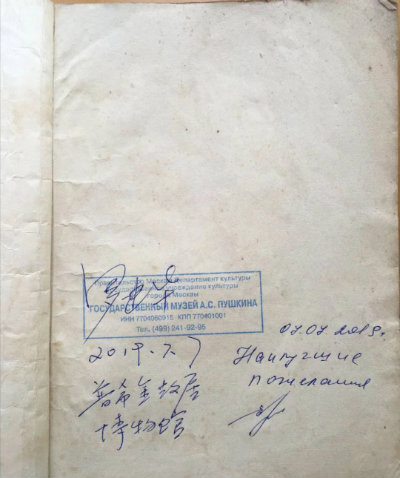 Правительство Москвы Департамент культуры
учреждение культуры
города Москвы
ГОСУДАРСТВЕННЫЙ МУЗЕЙ А.С. ПУШКИНА
ИНН 7704060915 КПП 770401001
Тел. (499) 241-92-95
2019.7.7
普希金故居
博物馆
07.07.2019г.
Наилучшие
пожелания